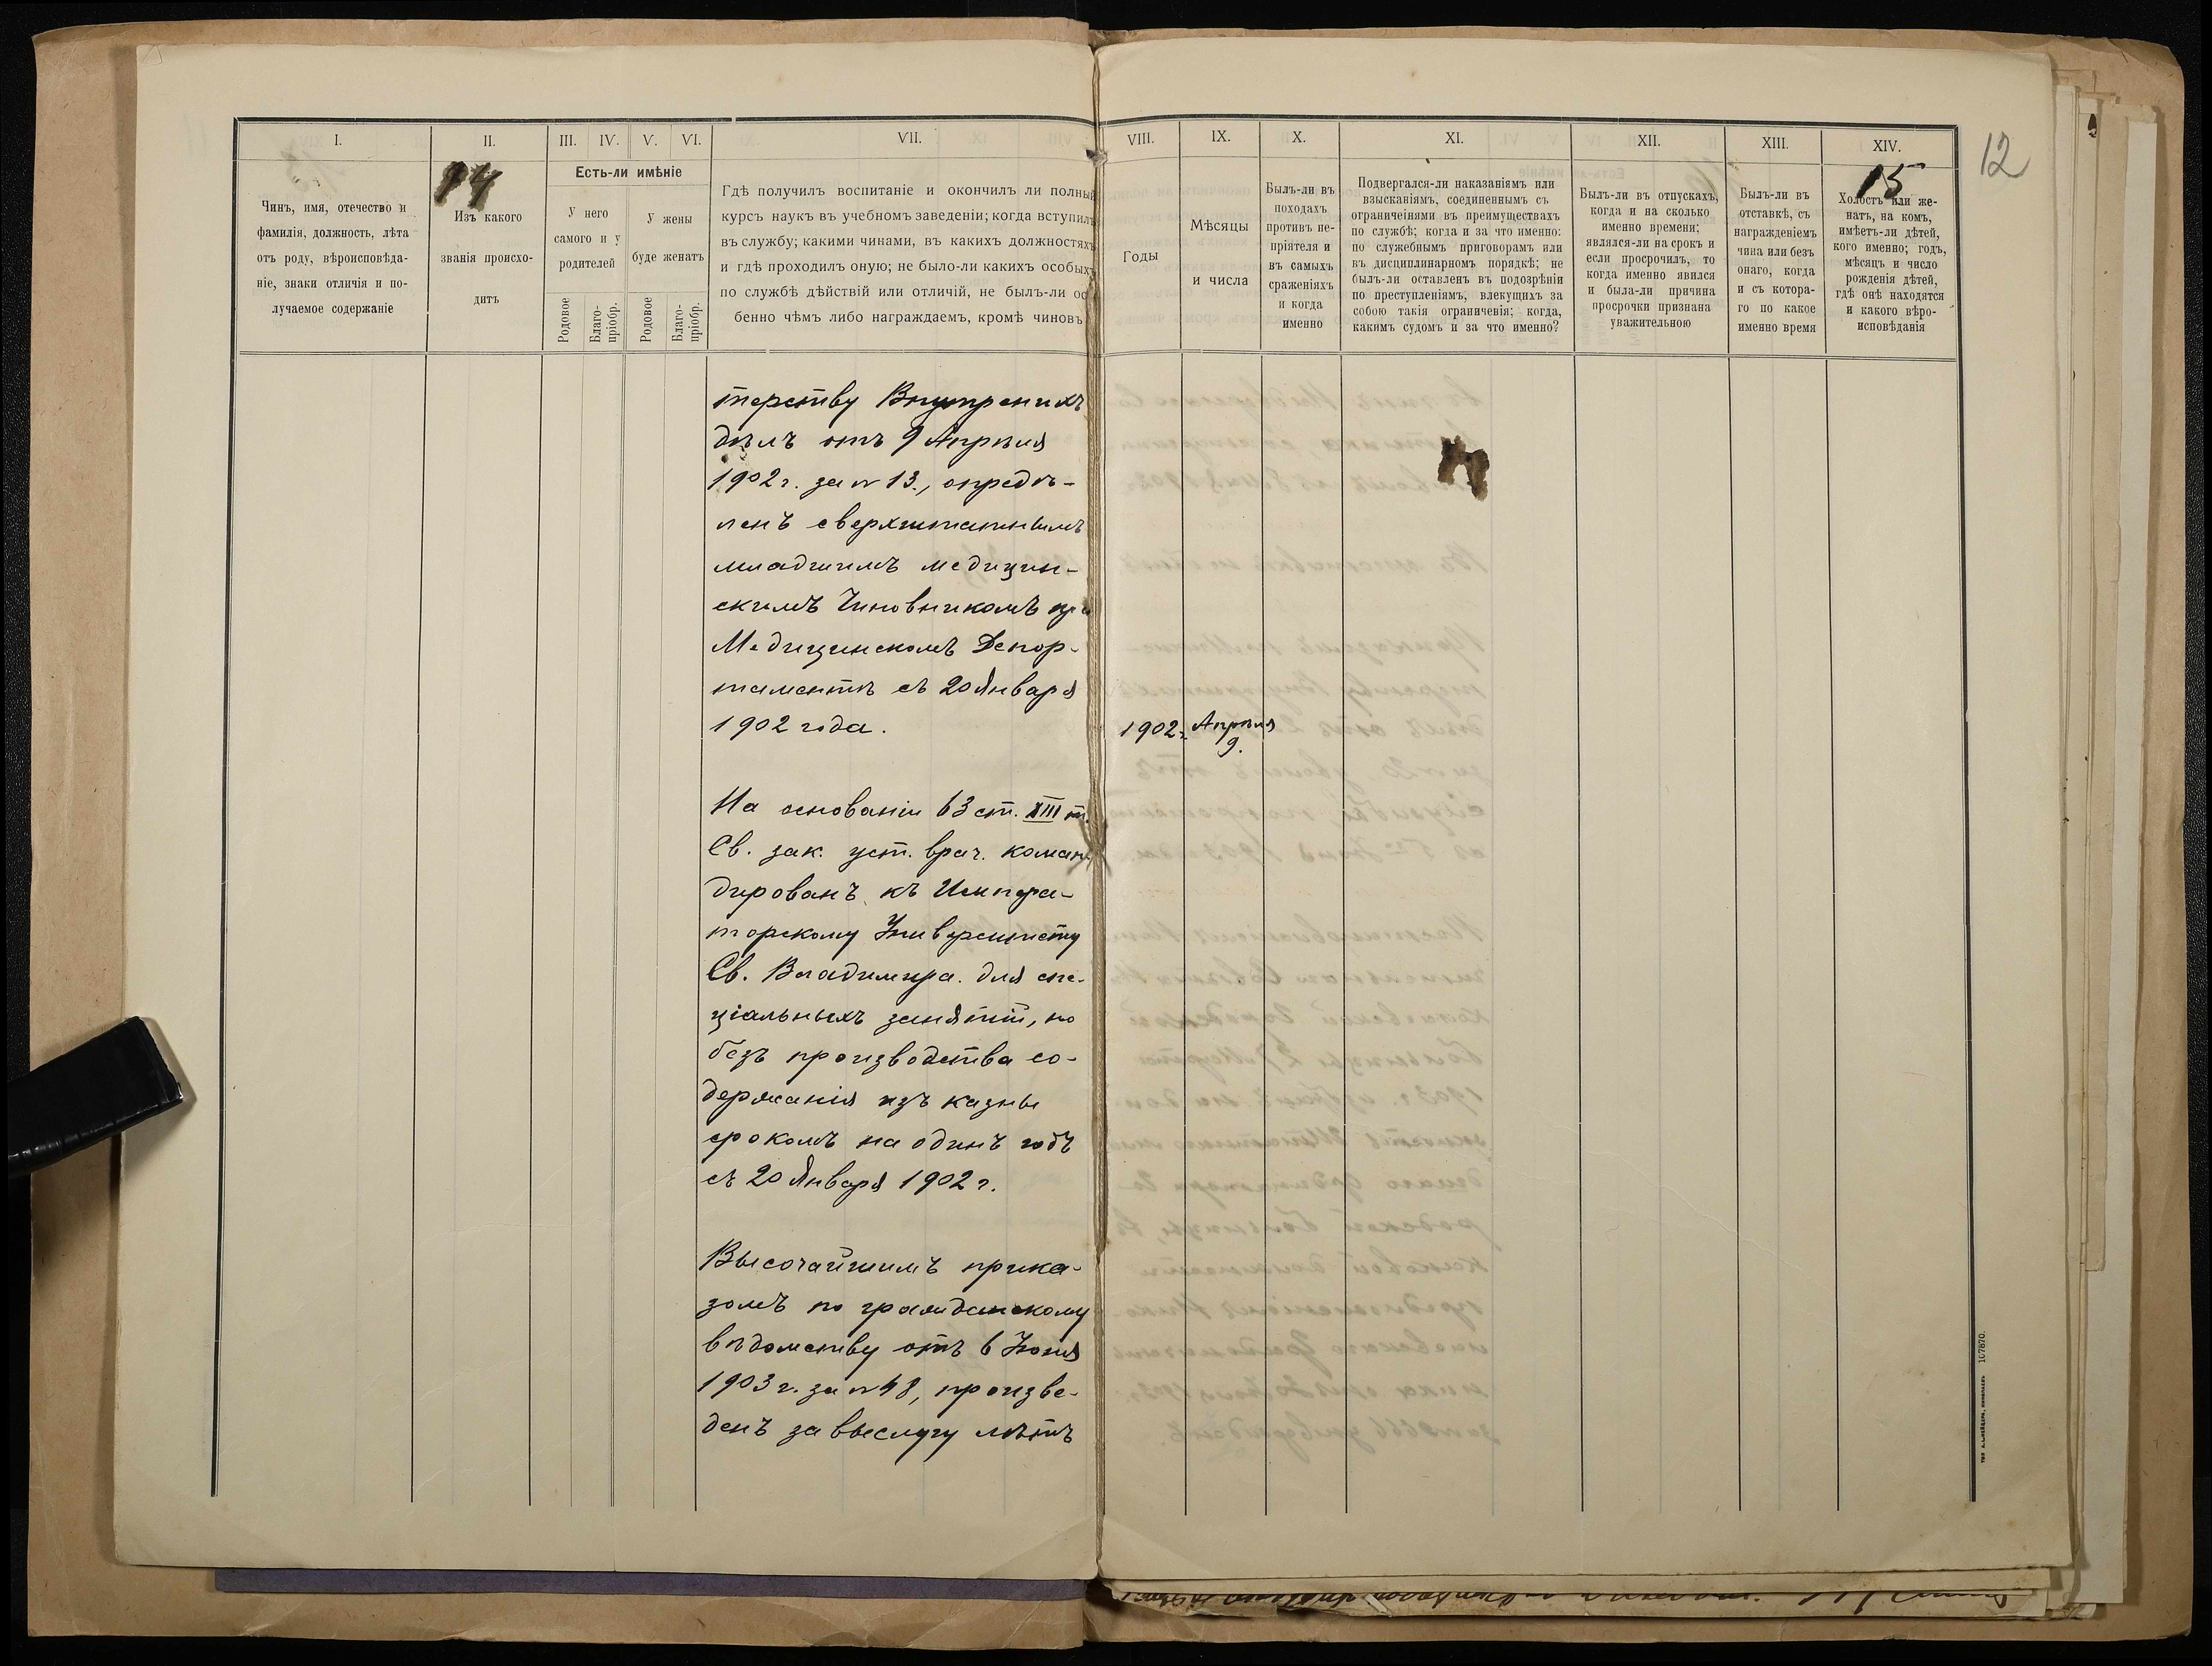 I.
II.
III.
IV.
V.
VI.
VII.
VIII.
IX.
X.
XI.
XII.
XIII.
XIV.
12
14
15
Чинъ, имя, отечество и
фамилія, должность, лѣта
отъ роду, вѣроисповѣда-
ніе, знаки отличія и по-
лучаемое содержаніе
Изъ какого
званія происхо-
дитъ
Есть-ли имѣніе
У него
самого и у
родителей
У жены
буде женатъ
Родовое
Благо-
пріобр.
Родовое
Благо-
пріобр.
Гдѣ получилъ воспитаніе и окончилъ ли полный
курсъ наукъ въ учебномъ заведеніи; когда вступилъ
въ службу; какими чинами, въ какихъ должностяхъ
и гдѣ проходилъ оную; не было-ли какихъ особыхъ
по службѣ дѣйствій или отличій, не былъ-ли ос
бенно чѣмъ либо награждаемъ, кромѣ чиновъ
Годы
Мѣсяцы
и числа
Былъ-ли въ
походахъ
противъ не-
пріятеля и
въ самыхъ
сраженіяхъ
и когда
именно
Подвергался-ли наказаніямъ или
взысканіямъ, соединеннымъ съ
ограниченіями въ преимуществахъ
по службѣ; когда и за что именно:
по служебнымъ приговорамъ или
въ дисциплинарномъ порядкѣ; не
былъ-ли оставленъ въ подозрѣніи
по преступленіямъ, влекущихъ за
собою такія ограниченія; когда,
какимъ судомъ и за что именно?
Былъ-ли въ отпускахъ,
когда и на сколько
именно времени;
являлся-ли на срокъ и
если просрочилъ, то
когда именно явился
и была-ли причина
просрочки признана
уважительною
Былъ-ли въ
отставкѣ, съ
награжденіемъ
чина или безъ
онаго, когда
и съ котора-
го по какое
именно время
Холостъ или же-
натъ, на комъ,
имѣетъ-ли дѣтей,
кого именно; годъ,
мѣсяцъ и число
рожденія дѣтей,
гдѣ онѣ находятся
и какого вѣро-
исповѣданія
терству Внутренихъ
дѣлъ отъ 9 Апрѣля
1902 г. за № 13., опредѣ-
ленъ сверхштатнымъ
младшимъ медицин-
скимъ Чиновникомъ при
Медицинскомъ Депор-
таментѣ съ 20 Января
1902 года.
1902 г.
Апрѣля
9.
На основаніи 63 ст. XIII т.
Св. зак. уст. врач. коман
дированъ къ Импера-
торскому Университету
Св. Владимира. для спе-
ціальныхъ занятій, но
безъ производства со-
держанія изъ казны
срокомъ на одинъ годъ
съ 20 Января 1902 г.
Высочайшимъ прика-
зомъ по гражданскому
вѣдомству отъ 6 Іюня
1903 г. за № 48, произве-
денъ за выслугу лѣтъ
107870.